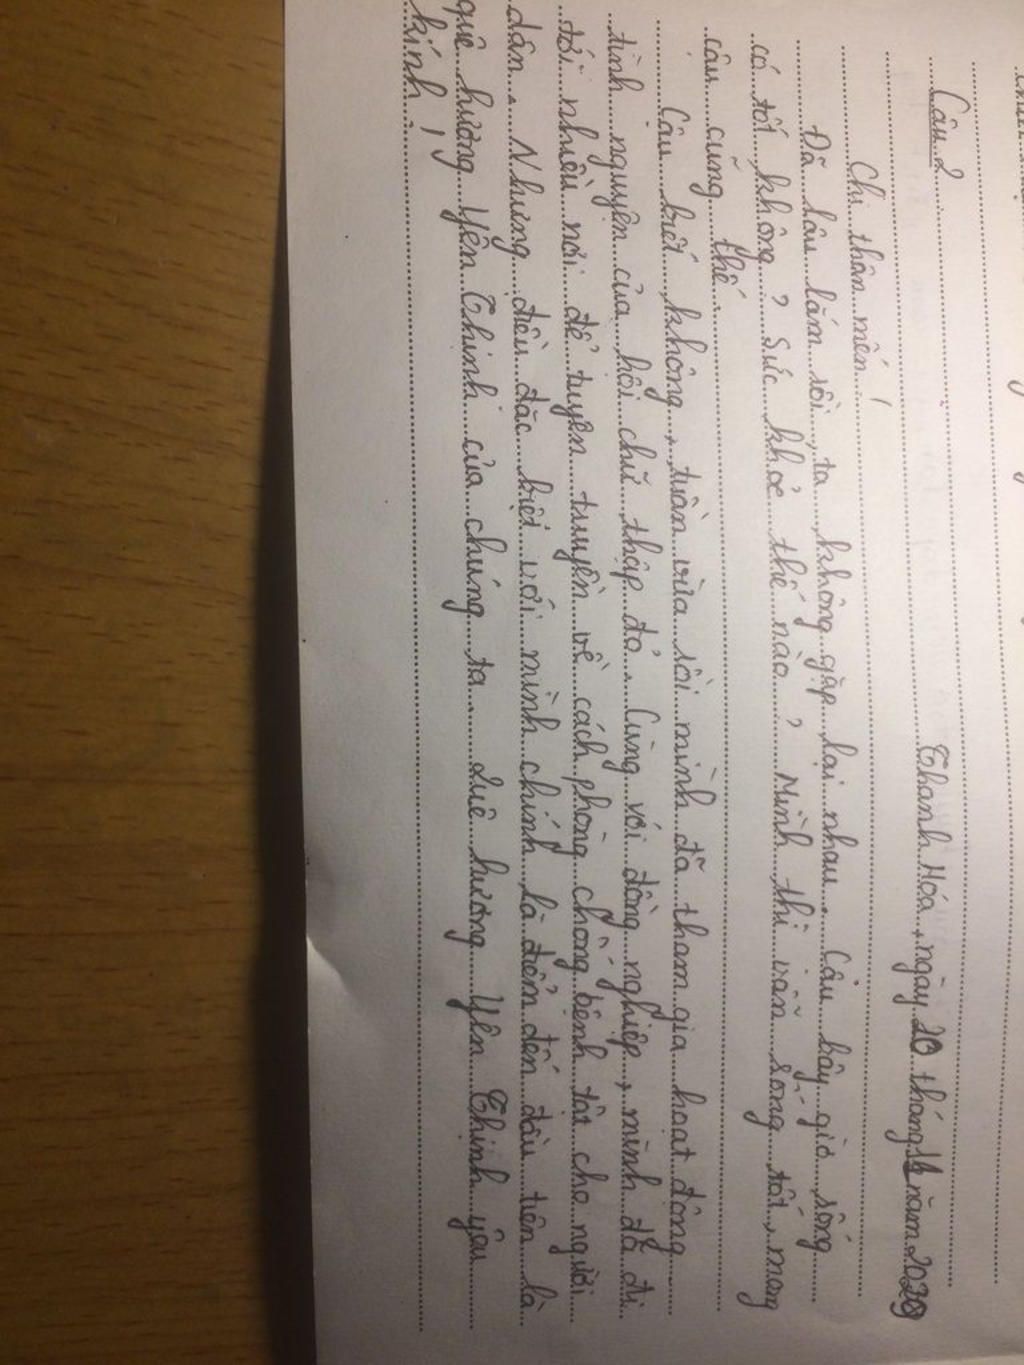 Câu 2
Thanh Hóa, ngày 20 tháng 11 năm 2029
Chi thân mến!
Đã lâu lắm rồi, ta không gặp lại nhau. Cậu bây giờ sống
có tốt không? Sức khỏe thế nào? Mình thì vẫn sống tốt, mong
cậu cũng thế.
Cậu biết không, tuần vừa rồi mình đã tham gia hoạt động
tình nguyện của hội chữ thập đỏ. Cùng với đồng nghiệp, mình đã đi
tới nhiều nơi để tuyên truyền về cách phòng chống bệnh tật cho người
dân. Nhưng điều đặc biệt với mình chính là điểm đến đầu tiên là
quê hương Yên Thịnh của chúng ta. Quê hương Yên Thịnh yêu
kính!